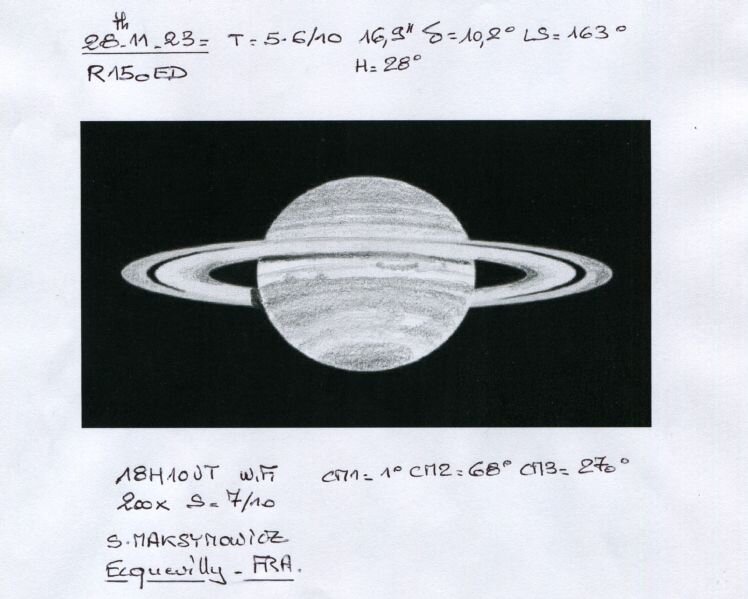 28th-11-23= T=5.6/10 16,9" δ=10,2° LS=163°
R150ED H=28°
18H10UT W.Fi CM1=1° CM2=68° CM3=270°
200x S=7/10
S.MAKSYMOWICZ
Ecquevilly - FRA.